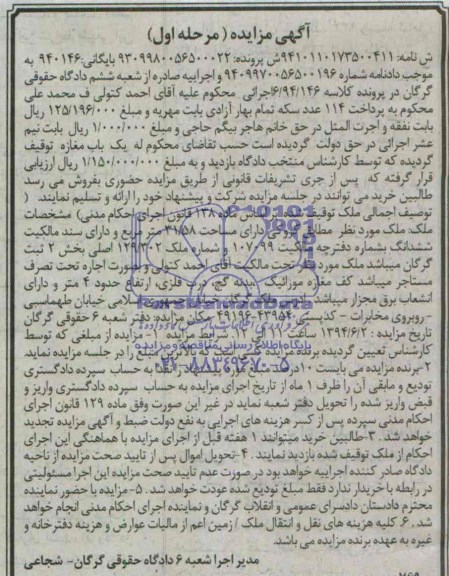 آگهی مزایده ( مرحله اول)
ش نامه: ۹۴۱۰۱۱۰۱۷۳۵۰۰۴۱۱ش پرونده: ۹۳۰۹۹۸۰۰۵۶۵۰۰۰۲۲ بایگانی:۹۴۰۱۴۶ به
موجب دادنامه شماره ۹۴۰۹۹۷۰۰۵۶۵۰۰۱۹۶ و اجراییه صادره از شعبه ششم دادگاه حقوقی
گرگان در پرونده کلاسه ۶/۹۴/۱۴۶اجرائی محکوم علیه آقای احمد کتولی ف محمد علی
محکوم به پرداخت ۱۱۴ عدد سکه تمام بهار آزادی بابت مهریه و مبلغ ۱۲۵/۱۹۶/۰۰۰ ریال
بابت نفقه و اجرت المثل در حق خانم هاجر بیگم حاجی و مبلغ ۱/۰۰۰/۰۰۰ ریال بابت نیم
عشر اجرائی در حق دولت گردیده است حسب تقاضای محکوم له یک باب مغازه توقیف
گردیده که توسط کارشناس منتخب دادگاه بازدید و به مبلغ ۱/۱۵۰/۰۰۰/۰۰۰ ریال ارزیابی
قرار گرفته که پس از جری تشریفات قانونی از طریق مزایده حضوری بفروش می رسد
طالبین خرید می توانند در جلسه مزایده شرکت و پیشنهاد خود را ارائه و تسلیم نمایند. (
توصیف اجمالی ملک توقیف ماده ۱۳۸ قانون اجرای احکام مدنی) مشخصات
ملک: ملک مورد نظر مطابق دارای مساحت ۳۱/۵۸ متر مربع و دارای سند مالکیت
ششدانگ بشماره دفترچه مالکیت ۱۰۷۰۹۹ و شماره ملک ۱۲۹/۳۰۲ اصلی بخش ۲ ثبت
گرگان میباشد ملک مورد نظر تحت مالکیت آقای احمد کتولی و بصورت اجاره تحت تصرف
مستاجر میباشد کف مغازه موزائیک بدنه گچ، درب فلزی، ارتفاع حدود ۴ متر و دارای
انشعاب برق مجزا میباشد خیابان طهماسبی
-روبروی مخابرات - کدپستی ۴۳۹۵۴-۴۹۱۹۶ مکان مزایده: دفتر شعبه ۶ حقوقی گرگان
تاریخ مزایده : ۱۳۹۴/۶/۲ ساعت شرایط مزایده : ۱- مزایده از مبلغی که توسط
کارشناس تعیین گردیده برنده مزایده کسی است که بالاترین مبلغ را در جلسه مزایده نماید.
۲-برنده مزایده می بایست ۱۰درصد به حساب سپرده دادگستری
تودیع و مابقی آن را ظرف ۱ ماه از تاریخ اجرای مزایده به حساب سپرده دادگستری واریز و
قبض واریز شده را تحویل دفتر شعبه نماید در غیر این صورت وفق ماده ۱۲۹ قانون اجرای
احکام مدنی سپرده پس از کسر هزینه های اجرایی به نفع دولت ضبط و آگهی مزایده تجدید
خواهد شد . ۳-طالبین خرید میتوانند ۱ هفته قبل از اجرای مزایده با هماهنگی این اجرای
احکام از ملک توقیف شده بازدید نمایند . ۴-تحویل اموال پس از تایید صحت مزایده از ناحیه
دادگاه صادر کننده اجراییه خواهد بود در صورت عدم تایید صحت مزایده این اجرا مسئولیتی
در رابطه با خریدار ندارد فقط مبلغ تودیع شده عودت خواهد شد . ۵-مزایده با حضور نماینده
محترم دادستان دادسرای عمومی و انقلاب گرگان و نماینده اجرای احکام مدنی انجام خواهد
شد . ۶. کلیه هزینه های نقل و انتقال ملک / زمین اعم از مالیات عوارض و هزینه دفترخانه و
غیره به عهده برنده مزایده می باشد.
مدیر اجرا شعبه ۶ دادگاه حقوقی گرگان- شجاعی
پایگاه اطلاع رسانی مناقصه و مزایده
۰۲۱-۸۸۳۴۹۶۷۰-۵